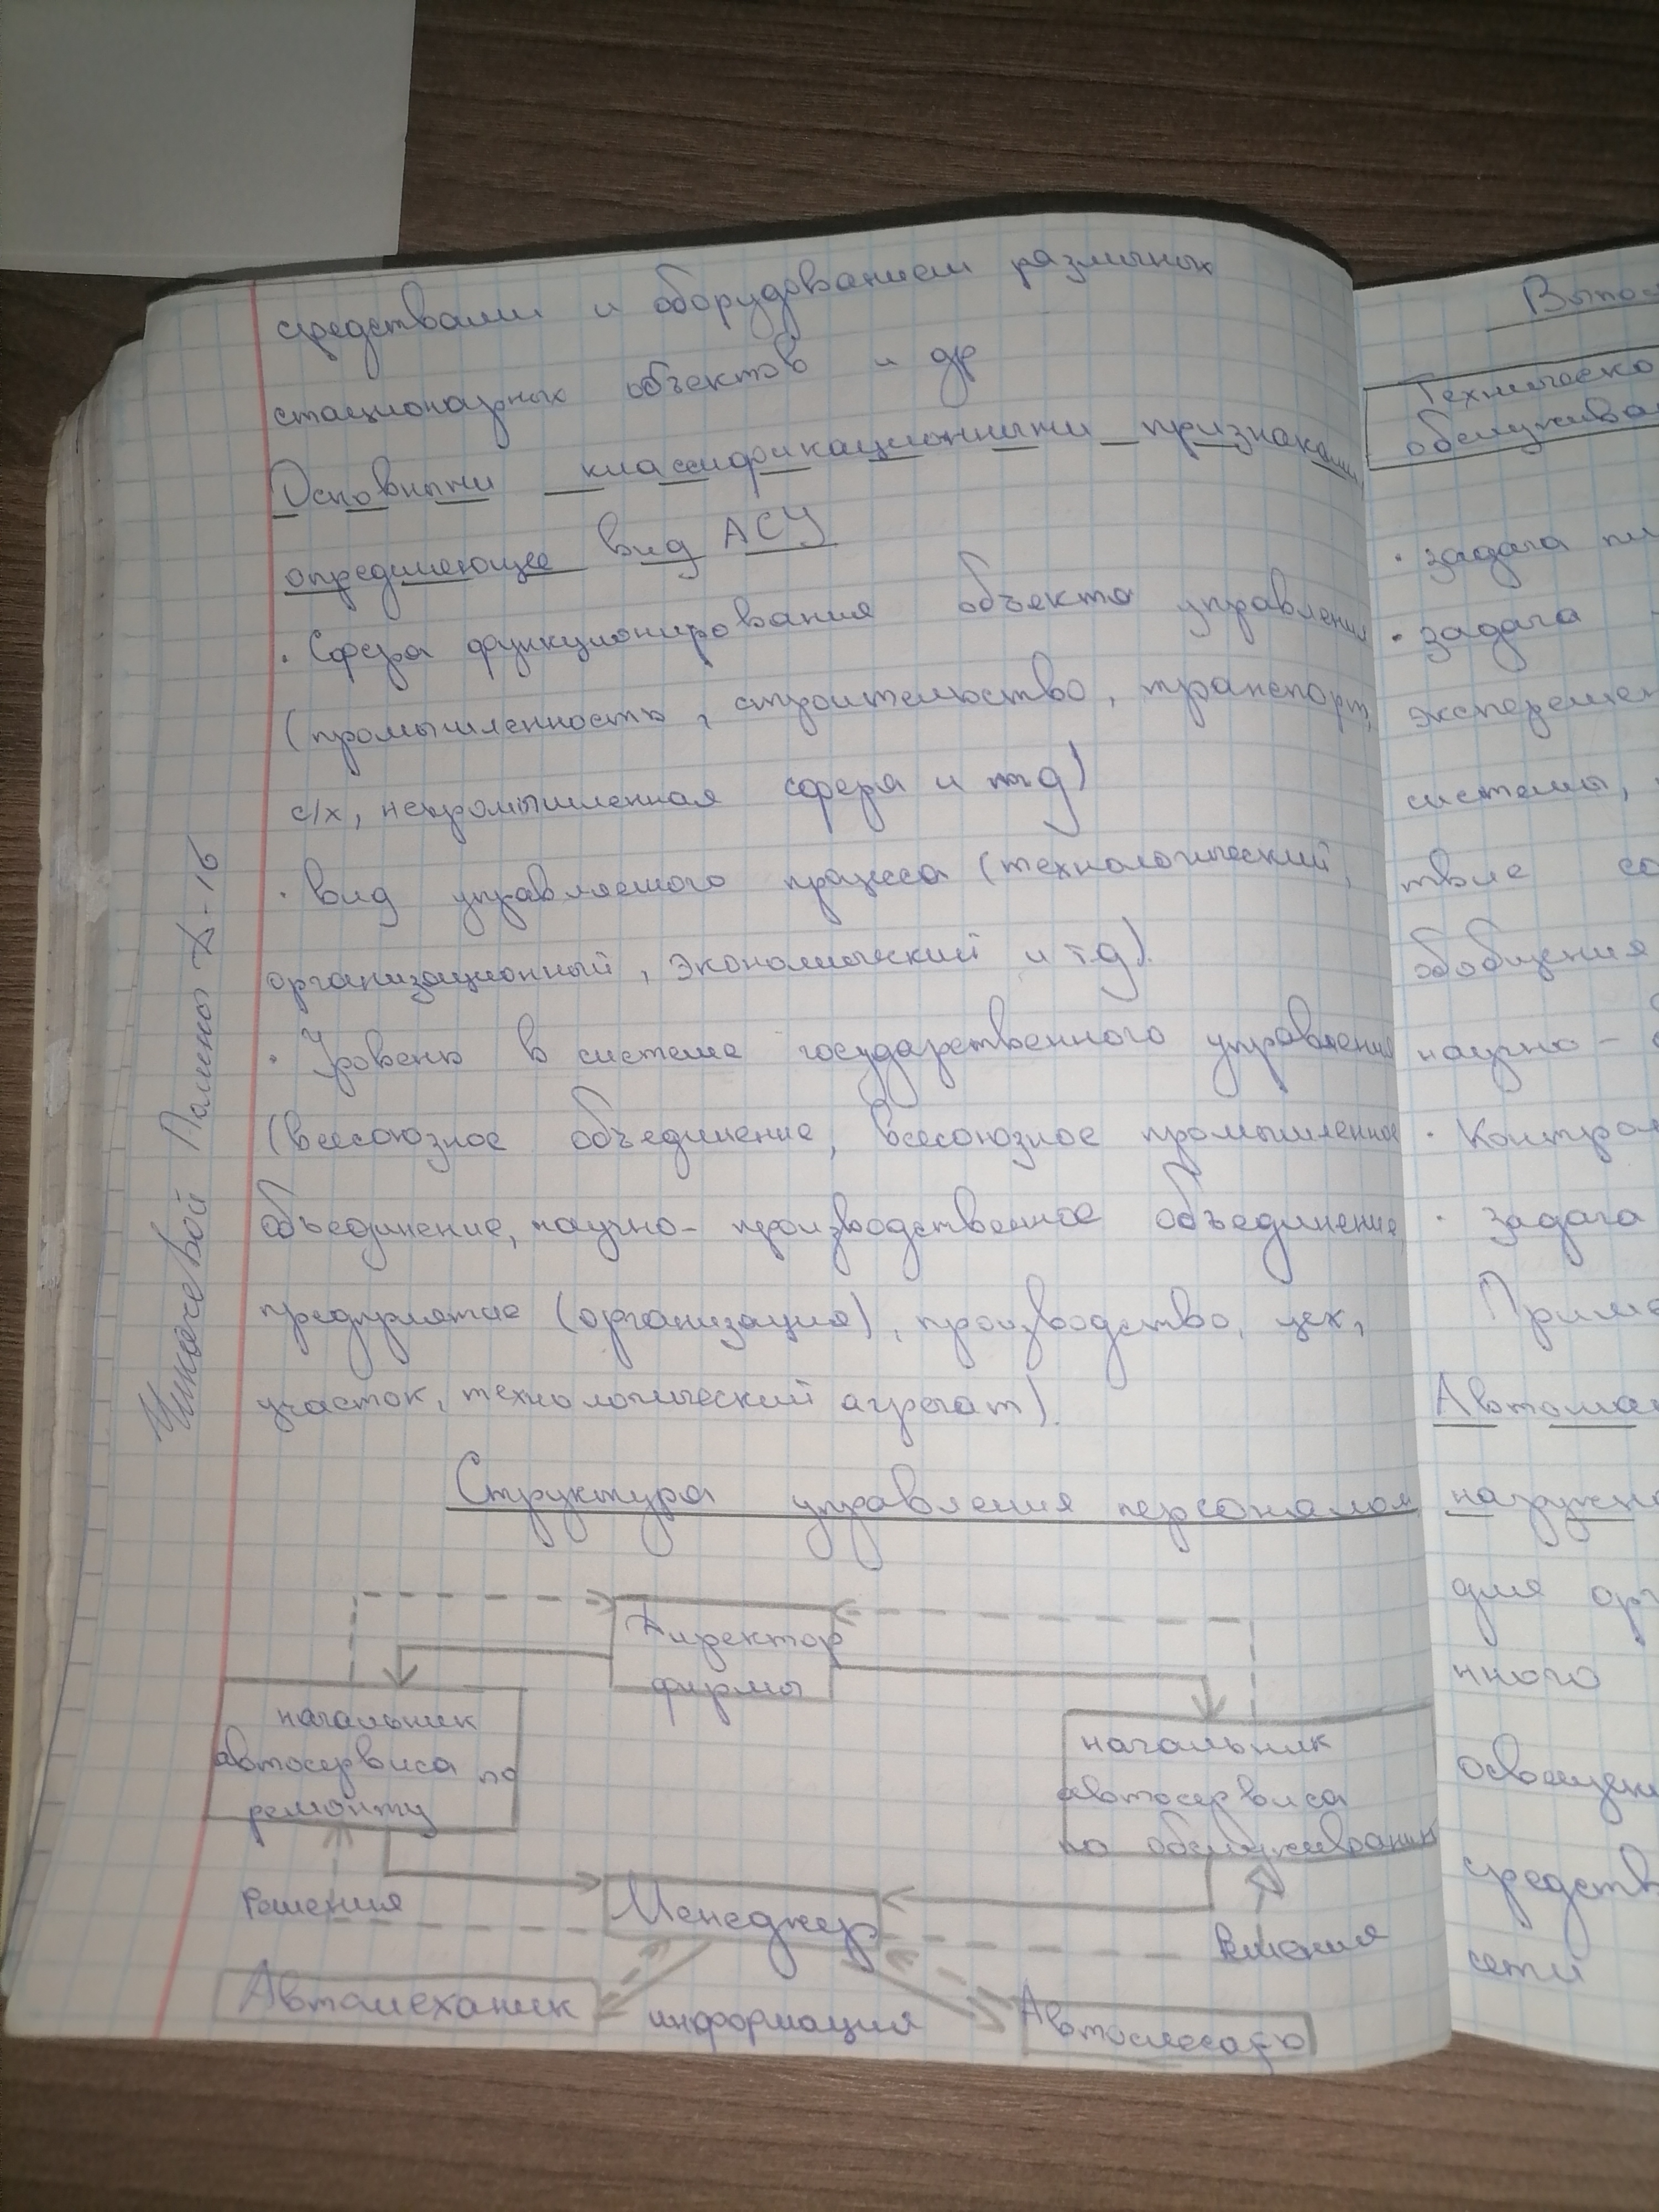 средствами и оборудованием различных
стационарных объектов и др
Основными классификационными признаками
определяющее вид АСУ
· Сфера функционирования объекта управления
(промышленность, строительство, транспорт,
с/х, непромышленная сфера и т д)
· вид управляемого процесса (технологический,
организационный, экономический и т.д).
· Уровень в системе государственного управления
(всесоюзное объединение, всесоюзное промышленное
объединение, научно-производственное объединение,
предприятие (организация), производство, цех,
участок, технологический агрегат).
Структура управления персоналом
Директор
фирмы
начальник
автосервиса по
ремонту
начальник
автосервиса
по обслуживанию
Решения
Менеджер
Автомеханик
информация
Автослесарь
Полины
Техническо
обслужива
· задача
· задача
системы,
твие со
обобщения
научно-
· Контрол
· задача
Приме
Автома
наружно
для орг
нного
освещен
средств
сети